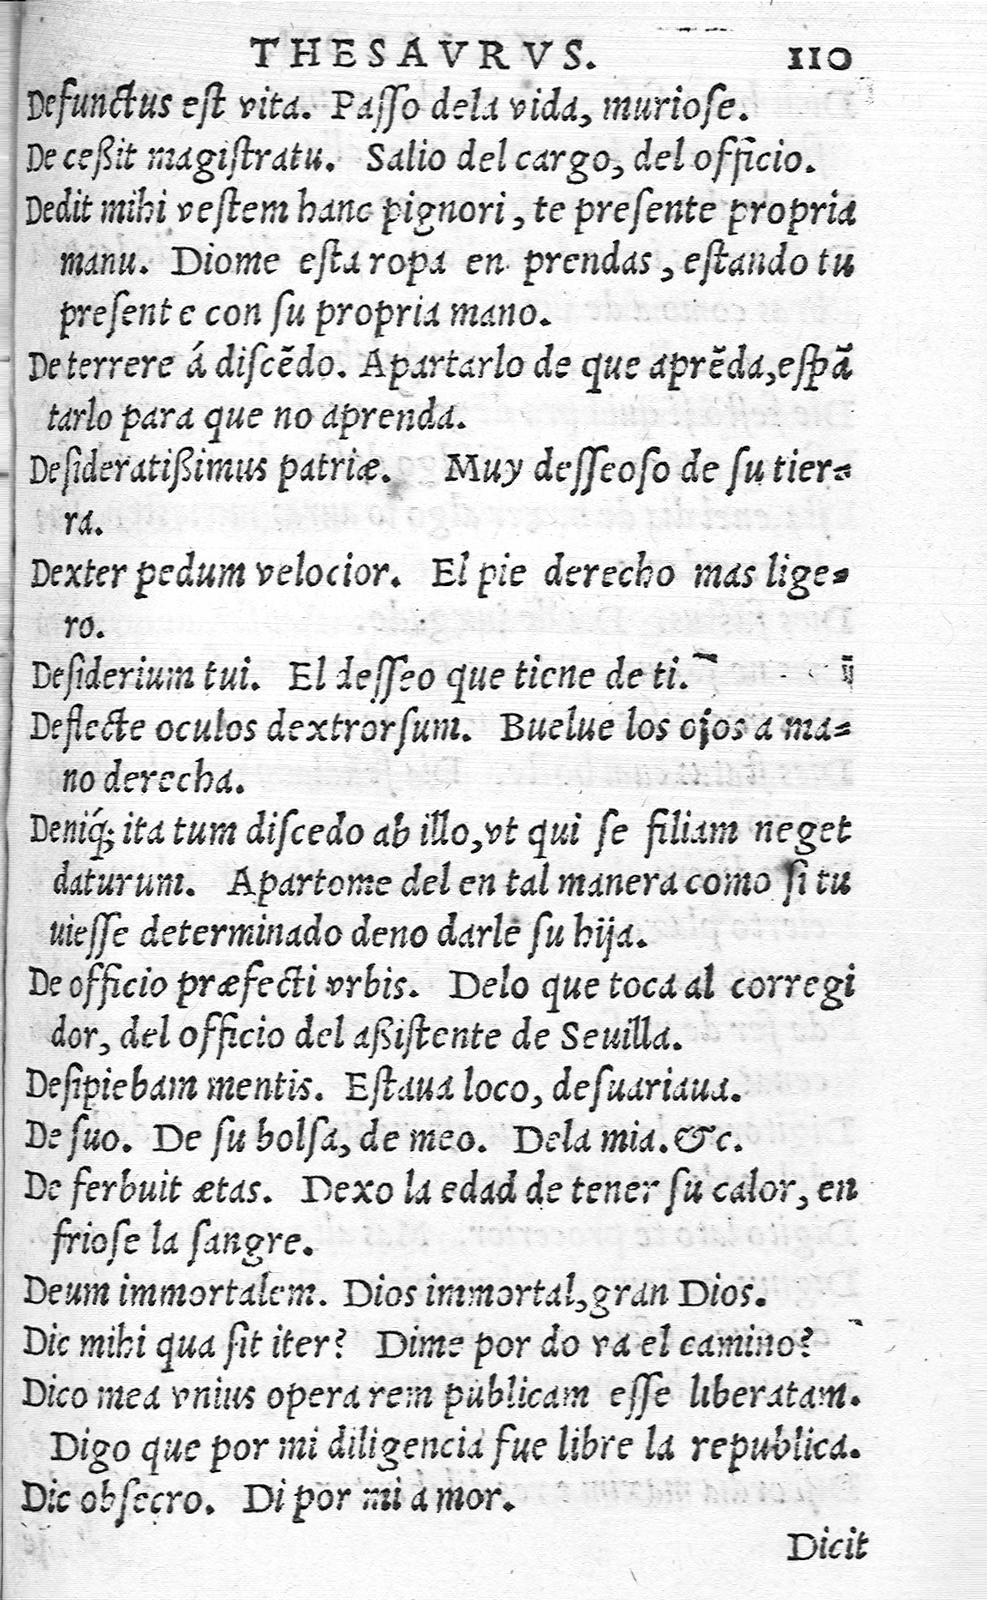 THESAVRVS. 110
Defunctus est vita. Passo dela vida, muriose.
De ceßit magistratu. Salio del cargo, del officio.
Dedit mihi vestem hanc pignori, te presente propria
manu. Diome esta ropa en prendas, estando tu
presente con su propria mano.
De terrere á discẽdo. Apartarlo de que aprẽda, espã
tarlo para que no aprenda.
Desideratißimus patriæ. Muy desseoso de su tier-
ra.
Dexter pedum velocior. El pie derecho mas lige-
ro.
Desiderium tui. El desseo que tiene de ti.
Deflecte oculos dextrorsum. Buelue los ojos a ma-
no derecha.
Deniq́; ita tum discedo ab illo, vt qui se filiam neget
daturum. Apartome del en tal manera como si tu
uiesse determinado deno darle su hija.
De officio præfecti vrbis. Delo que toca al corregi
dor, del officio del aßistente de Seuilla.
Desipiebam mentis. Estaua loco, desuariaua.
De suo. De su bolsa, de meo. Dela mia. &c.
De ferbuit ætas. Dexo la edad de tener su calor, en
friose la sangre.
Deum immortalem. Dios immortal, gran Dios.
Dic mihi qua sit iter? Dime por do va el camino?
Dico mea vnius opera rem publicam esse liberatam.
Digo que por mi diligencia fue libre la republica.
Dic obsecro. Di por mi amor.
Dicit